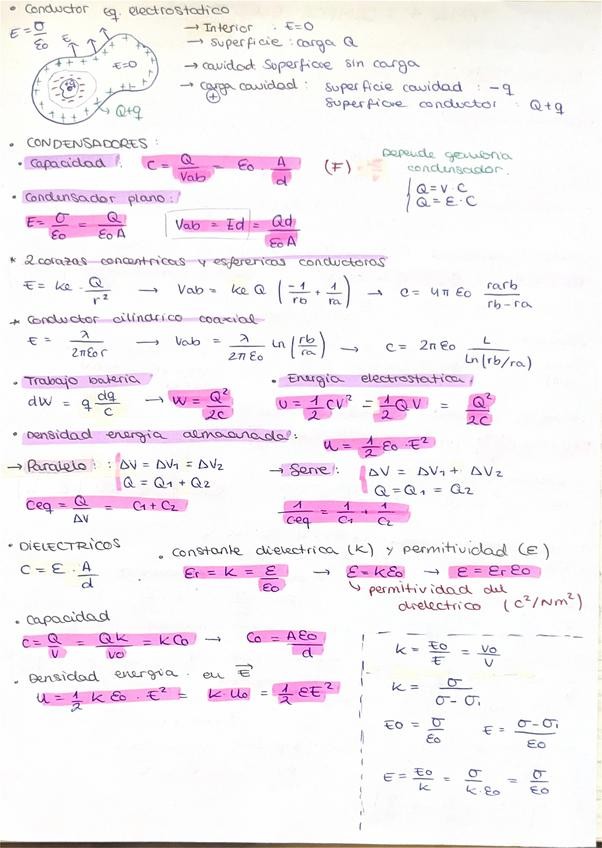 • Conductor eq. electrostático
E = σ/ε0 E E=0 Q+q
→ Interior : E=0
→ Superficie : carga Q
→ cavidad superficie sin carga
→ carga cavidad : superficie cavidad : -q
+ superficie conductor : Q+q
• CONDENSADORES :
• Capacidad : C = Q/Vab = ε0 · A/d (F)
Depende geometria
condensador.
Q = V · C
Q = E · C
• Condensador plano :
E = σ/ε0 = Q/ε0A Vab = Ed = Qd/ε0A
* 2 corazas concentricas y esfericas conductoras
E = ke · Q/r² → Vab = ke Q (-1/rb + 1/ra) → C = 4π ε0 rarb/rb-ra
* Conductor cilindrico coaxial
E = λ/2πε0r → Vab = λ/2πε0 ln (rb/ra) → C = 2π ε0 L/Ln(rb/ra)
• Trabajo bateria • Energia electrostatica :
dW = q dq/C → W = Q²/2C U = 1/2 CV² = 1/2 QV = Q²/2C
• Densidad energia almacenada : u = 1/2 ε0 · E²
→ Paralelo : ΔV = ΔV1 = ΔV2 → Serie : ΔV = ΔV1 + ΔV2
Q = Q1 + Q2 Q = Q1 = Q2
Ceq = Q/ΔV = C1 + C2 1/Ceq = 1/C1 + 1/C2
• DIELECTRICOS • constante dielectrica (K) y permitividad (ε)
C = ε · A/d εr = k = ε/ε0 → ε = kε0 → ε = εr ε0
↳ permitividad del
dielectrico (C²/Nm²)
• Capacidad
C = Q/V = Qk/V0 = kC0 → C0 = Aε0/d
• Densidad energia en E
u = 1/2 k ε0 · E² = k · u0 = 1/2 εE²
k = E0/E = V0/V
k = σ/σ-σi
E0 = σ/ε0 E = σ-σi/ε0
E = E0/k = σ/k·ε0 = σ/ε0